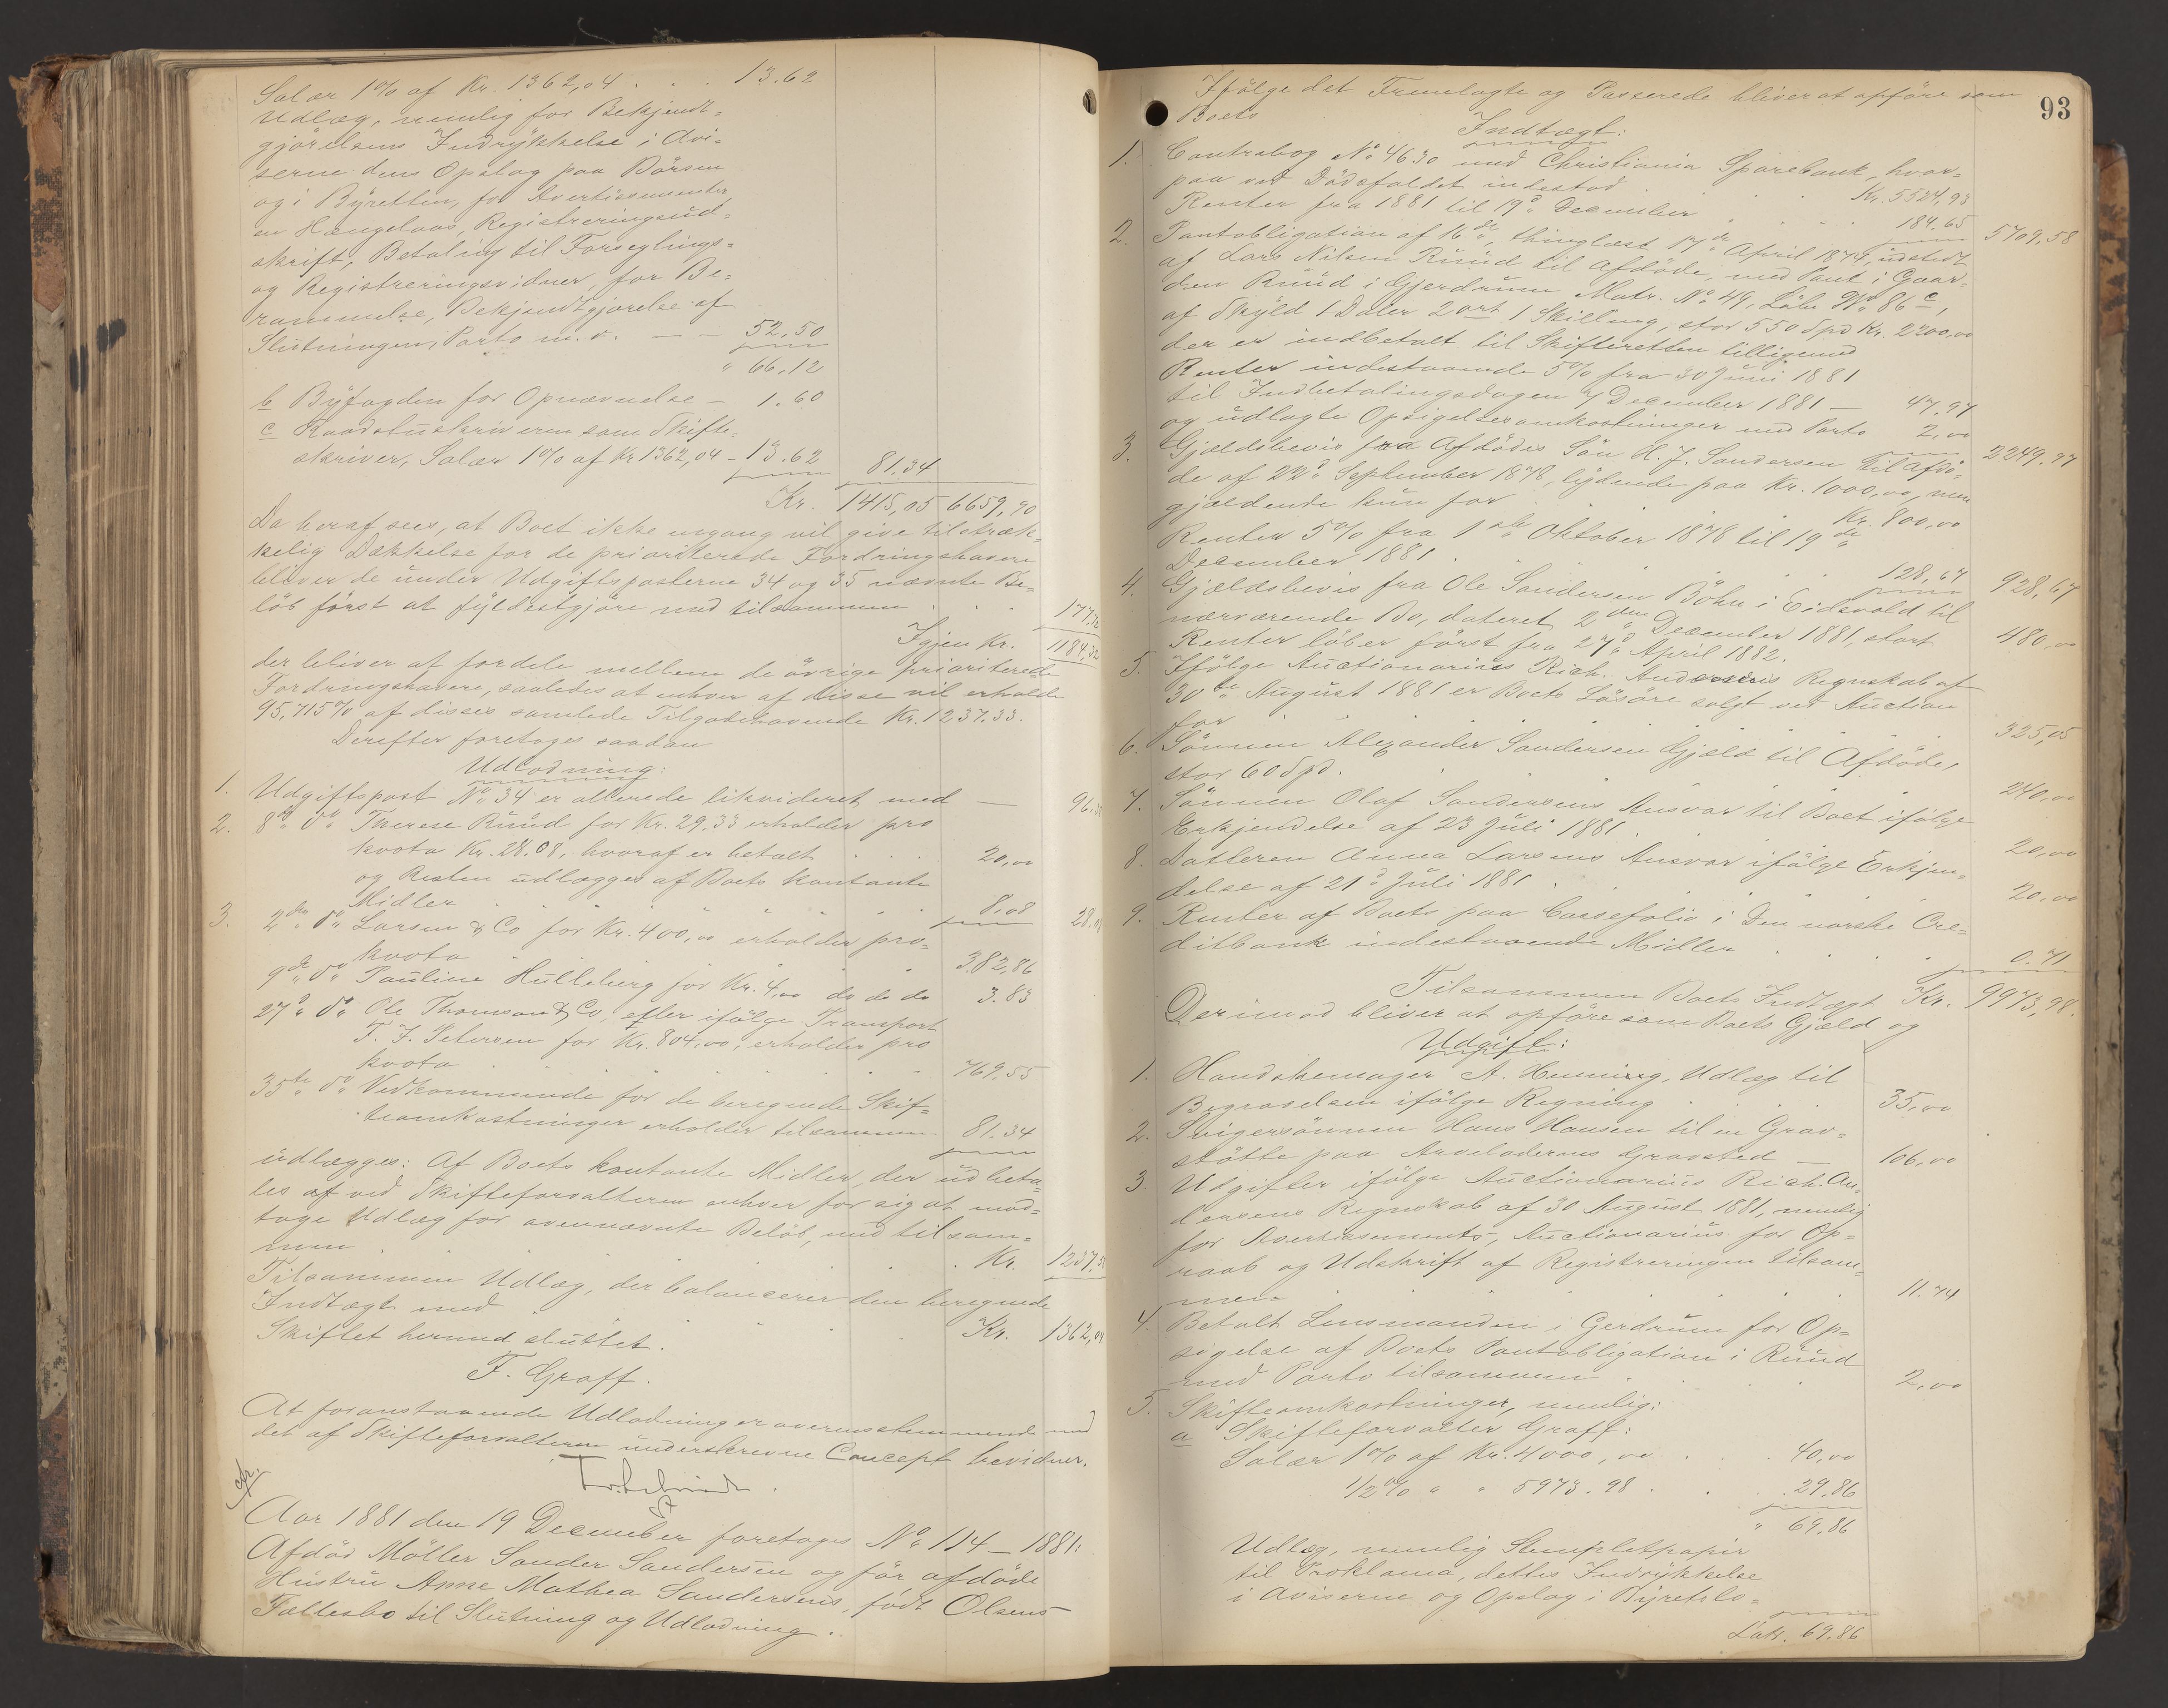 Salær 1% af Kr. 1362,04 . . . 13.62
Udlæg, nemlig for Bekjendt-
gjörelsens Indrykkelse i Avi-
serne dens Opslag paa Börsen
og i Byretten, for Avertissementer,
en Hængelaas, Registreringsud-
skrift, Betaling til Forseglings-
og Registreringsvidner, for Be-
rammelse, Bekjendtgjörelse af
Slutningen, Porto m. v. — — 52,50
" 66,12
b Byfogden for Opnævnelse — 1.60
c Raadstuskriveren som Skifte-
skriver, Salær 1% af Kr 1362,04 - 13.62 81.34
Kr. 1415,05 6659,90
Da heraf sees, at Boet ikke engang vil give tilstræk-
kelig Dækkelse for de prioriterede Fordringshavere
bliver de under Udgiftsposterne 34 og 35 nævnte Be-
löb först at fyldestgjöre med tilsammen . . . 177,72
Igjen Kr. 1184,32
der bliver at fordele mellem de övrige prioriterede
Fordringshavere, saaledes at enhver af disse vil erholde
95,715% af disses samlede Tilgodehavende Kr. 1237.33.
Derefter foretoges saadan
Udlodning:
1. Udgiftspost No 34 er allerede likvideret med — 96.38
2. 8de do Therese Ruud for Kr. 29,33 erholder pro
kvota Kr. 28.08, hvoraf er betalt . . . 20,00
og Resten udlægges af Boets kontante
Midler . . . 8,08 28,08
3. 2den do Larsen & Co for Kr. 400,00 erholder pro-
kvota . . . 382,86
9de do Pauline Hulleberg for Kr. 4,00 do do do 3.83
27de do Ole Thomson & Co, efter ifölge Transport
T. J. Petersen for Kr. 804,00, erholder pro
kvota . . . 769.55
35te do Vedkommende for de beregnede Skif-
teomkostninger erholder tilsammen 81.34
udlægges: Af Boets kontante Midler, der udbeta-
les af ved Skifteforvalteren enhver for sig at mod-
tage Udlæg for ovennævnte Belöb, med tilsam-
men . . . Kr. 1237,58
Tilsammen Udlæg, der balancerer den beregnede
Indtægt med . . . Kr. 1362,04
Skiftet hermed sluttet.
F. Graff.
At foranstaaende Udlodning er overensstemmende med
det af Skifteforvalteren underskrevne Concept bevidner.
Aar 1881 den 19 December foretoges No 114 — 1881:
Afdöd Möller Sander Sandersen og för afdöde
Hustru Anne Mathea Sandersens, födt Olsens
Fællesbo til Slutning og Udlodning.
93
Ifölge det Fremlagte og Passerede bliver at opföre som
Boets
Indtægt:
1. Contrabog No 4630 med Christiania Sparebank, hvor-
paa ved Dödsfaldet indestod . . . Kr. 5524,93
Renter fra 1881 til 19de December . . . 184,65 5709,58
2. Pantobligation af 16de, thinglæst 17de April 1874, udstedt
af Lars Nilsen Ruud til Afdöde, med Pant i Gaar-
den Ruud i Gjerdrum Matr. No 49, Löbe No 86 c,
af Skyld 1 Daler 2 ort 1 Skilling, stor 550 Spd Kr. 2200,00
der er indbetalt til Skifteretten tilligemed
Renter indestaaende 5% fra 30 Juni 1881
til Indbetalingsdagen 7 December 1881 — 47,97
og udlagte Opsigelsesomkostninger med Porto 2,00 2249,97
3. Gjældsbevis fra Afdödes Sön H. J. Sandersen til Afdö-
de af 22de September 1878, lydende paa Kr. 1000,00, men
gjældende kun for . . . Kr. 800,00
Renter 5% fra 1ste Oktober 1878 til 19de
December 1881 . . . 128,67 928,67
4. Gjældsbevis fra Ole Sandersen Böhn i Eidsvold til
nærværende Bo, dateret 2den December 1881, stort 480,00
Renter löber först fra 27de April 1882.
5. Ifölge Auctionarius Rich. Andersens Regnskab af
30te August 1881 er Boets Lösöre solgt ved Auction
for . . . 325,05
6. Sönnen Alexander Sandersen Gjæld til Afdöde,
stor 60 Spd. . . . 240,00
7. Sönnen Olaf Sandersens Ansvar til Boet ifölge
Erkjendelse af 23 Juli 1881 . . . 20,00
8. Datteren Anna Larsens Ansvar ifölge Erkjen-
delse af 21de Juli 1881 . . . 20,00
9. Renter af Boets paa Cassefolio i Den norske Cre-
ditbank indestaaende Midler . . . 0.71
Tilsammen Boets Indtægt Kr. 9973,98.
Derimod bliver at opföre som Boets Gjæld og
Udgift:
1. Handskemager A. Henning, Udlæg til
Begravelsen ifölge Regning . . . 35,00
2. Svigersönnen Hans Hansen til en Grav-
stötte paa Arveladernes Gravsted — 106,00
3. Udgifter ifölge Auctionarius Rich. An-
dersens Regnskab af 30 August 1881, nemlig
for Avertissements, Auctionarius for Op-
raab og Udskrift af Registreringen tilsam-
men . . . 11.74
4. Betalt Lensmanden i Gerdrum for Op-
sigelse af Boets Pantobligation i Ruud
med Porto tilsammen . . . 2,00
5. Skifteomkostninger, nemlig:
a Skifteforvalter Graff:
Salær 1% af Kr. 4000,00 . . . 40,00
1/2% " " 5973.98 . . . 29.86
" 69,86
Udlæg, nemlig Stempletpapir
til Proklama, dettes Indrykkelse
i Aviserne og Opslag i Byretslo-
Lats. 69.86